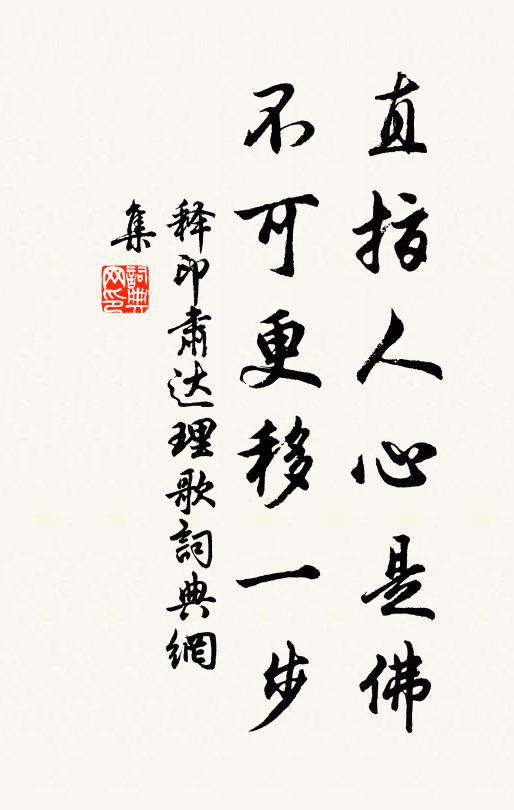 直指人心是佛
不可更移一步
释印肃达理歌詞典網
集
詞典
网印